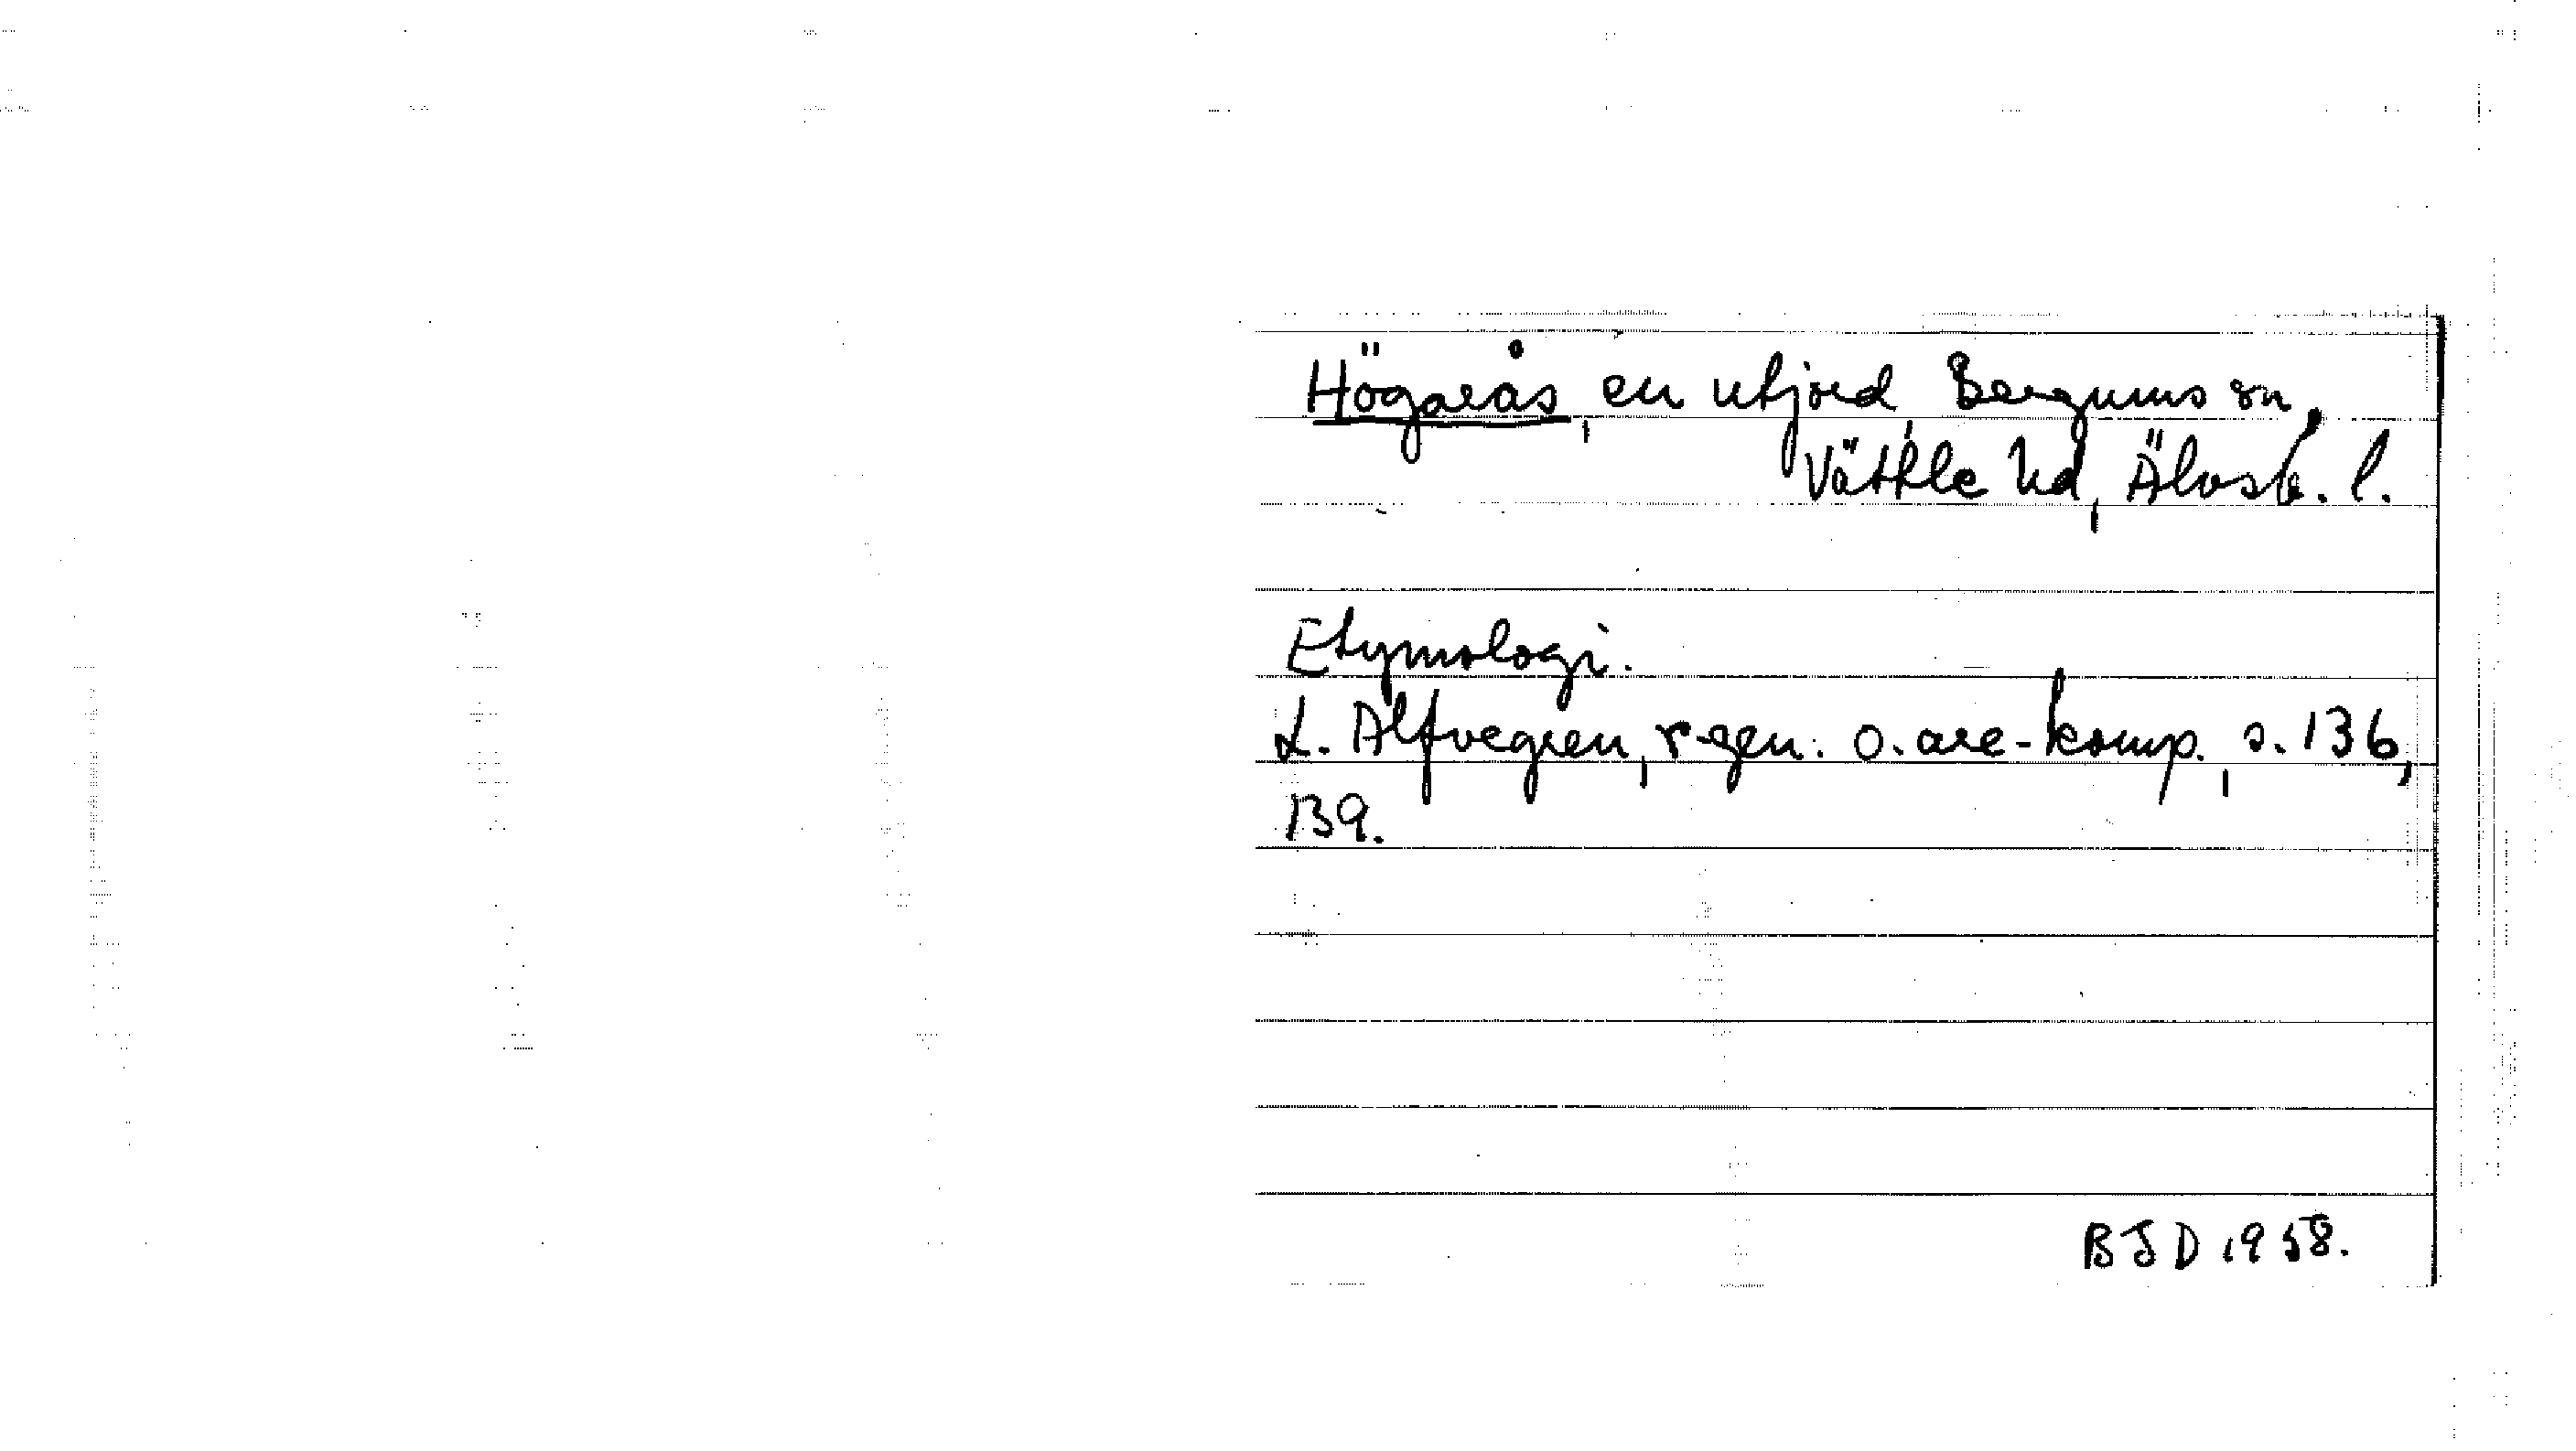 Högarås, en utjord, Bergums sn,
Vättle hd, Älvsb. l.
Etymologi.
L. Alfvegren, r-gen. o. are-komp., s. 136,
139.
BJD 1958.